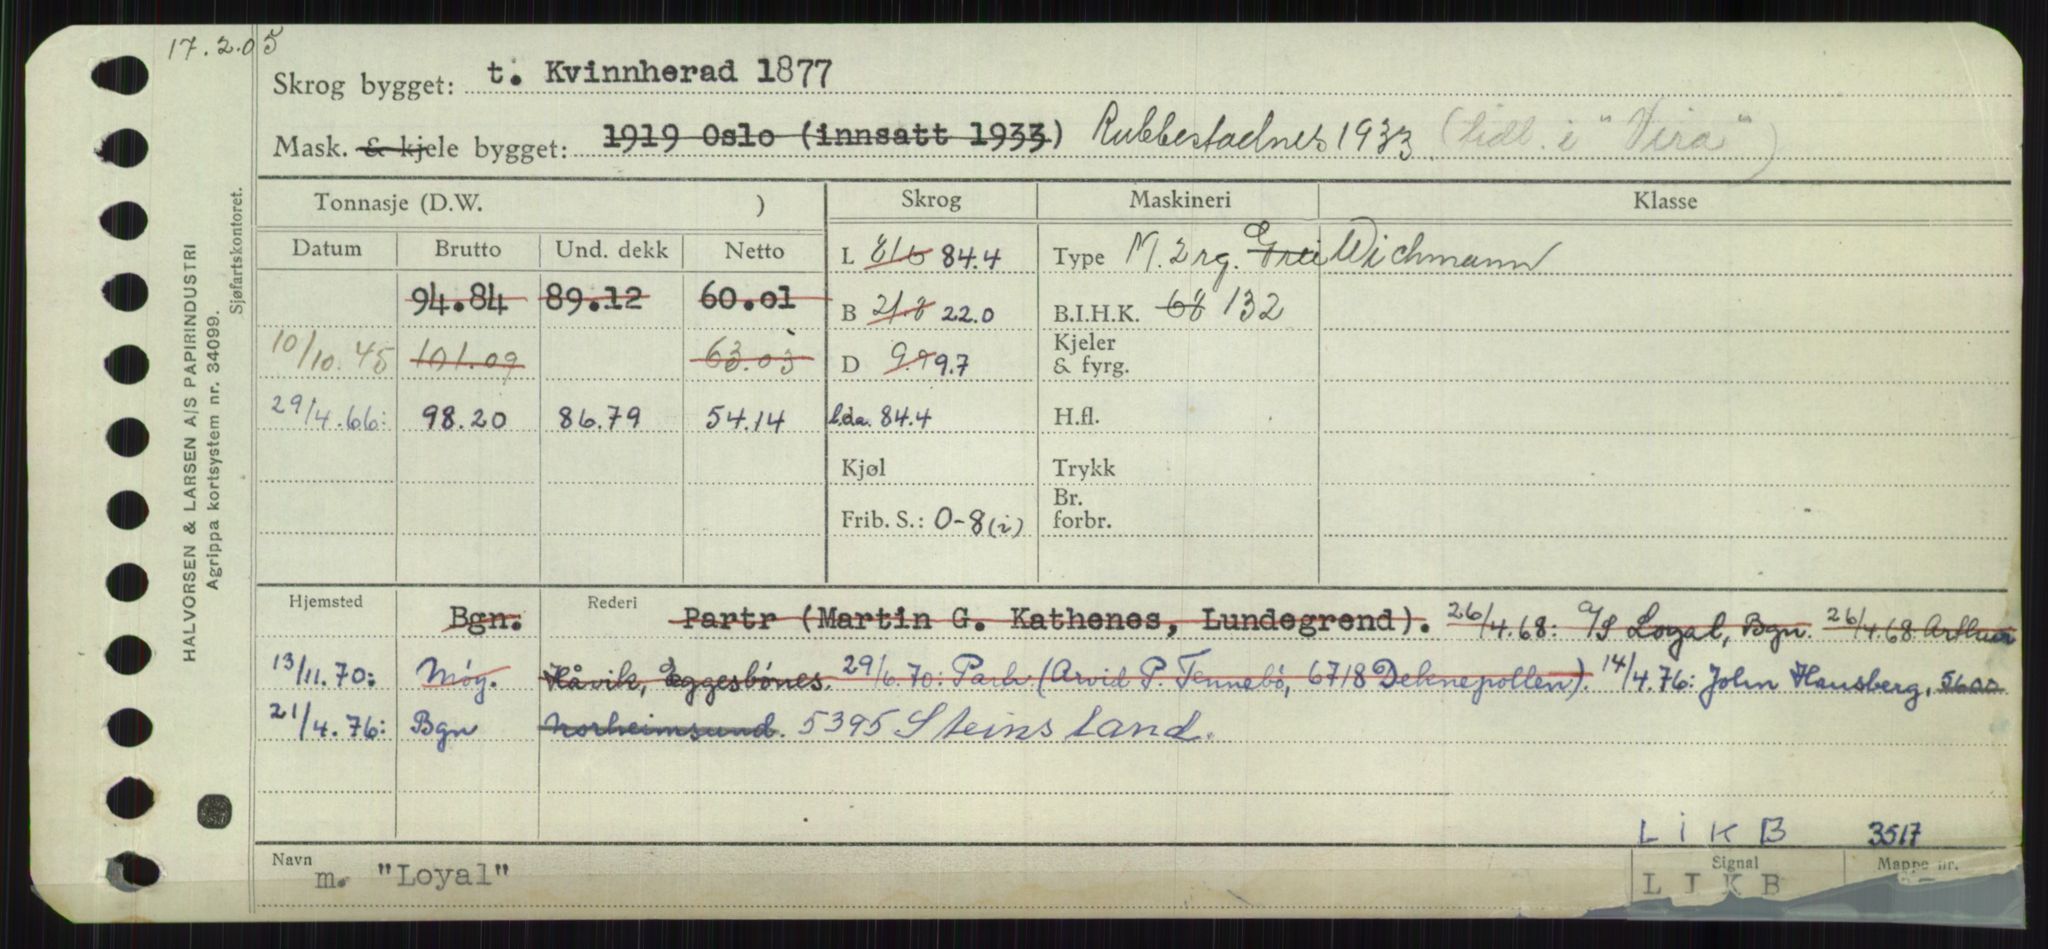 17.2.05
Skrog bygget: t. Kvinnherad 1877
Mask. & kjele bygget: 1919 Oslo (innsatt 1933) Rubbestadnes 1933 (tidl. i "Vira")
Tonnasje (D.W. ) Skrog Maskineri Klasse
Datum Brutto Und. dekk Netto L 81.6 84.4 Type M. 2 rg. Grei Wichmann
94.84 89.12 60.01 B 21.8 22.0 B.I.H.K. 68 132
10/10.45 101.09 63.03 D 9.9 9.7 Kjeler & fyrg.
29/4.66: 98.20 86.79 54.14 l.d.a. 84.4 H.fl.
Kjøl Trykk
Frib. S.: 0-8 (i) Br. forbr.
Hjemsted Bgn. Rederi Partr (Martin G. Kathenes, Lundegrend). 26/4.68: A/S Loyal, Bgn. 26/4.68 Arthur
13/11.70: Møy. Håvik, Eggesbönes. 29/6.70: Partr (Arvid P. Tennebö, 6718 Deknepollen). 14/4.76: John Hausberg, 5600
21/4.76: Bgn Norheimsund. 5395 Steinsland.
LIKB 3517
Navn m. "Loyal" Signal LIKB Mappe nr.
HALVORSEN & LARSEN A/S PAPIRINDUSTRI
Agrippa kortsystem nr. 34099.
Sjøfartskontoret.